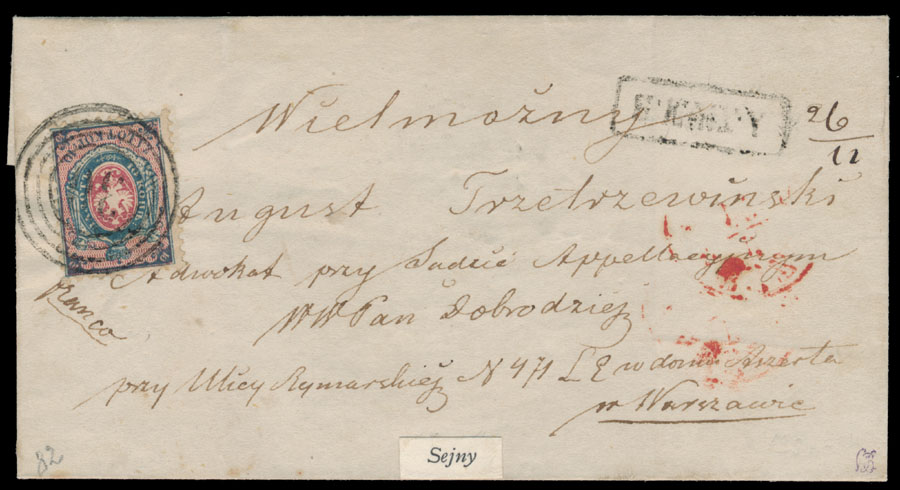 Wielmożny
26
12
August Trzetrzewiński
Adwokat przy Sądzie Appellacyjnym
franco
WW Pan Dobrodziej
przy Ulicy Rymarskiej N 471 w domu
w Warszawie
Sejny
82